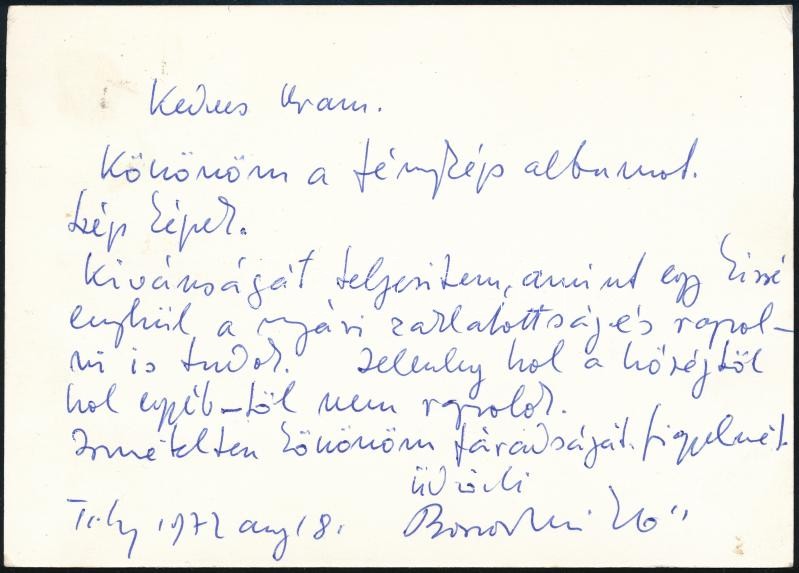 Kedves Uram.
Köszönöm a fénykép albumot.
Szép képek.
Kívánságát teljesitem, amint egy kissé
enyhül a nyári zaklatottság és rajzol-
ni is tudok. Jelenleg hol a hőségtől
hol egyéb-től nem rajzolok.
Ismételten köszönöm fáradságát. figyelmét.
üdvözli
1972 aug 18. Borsos Miklós